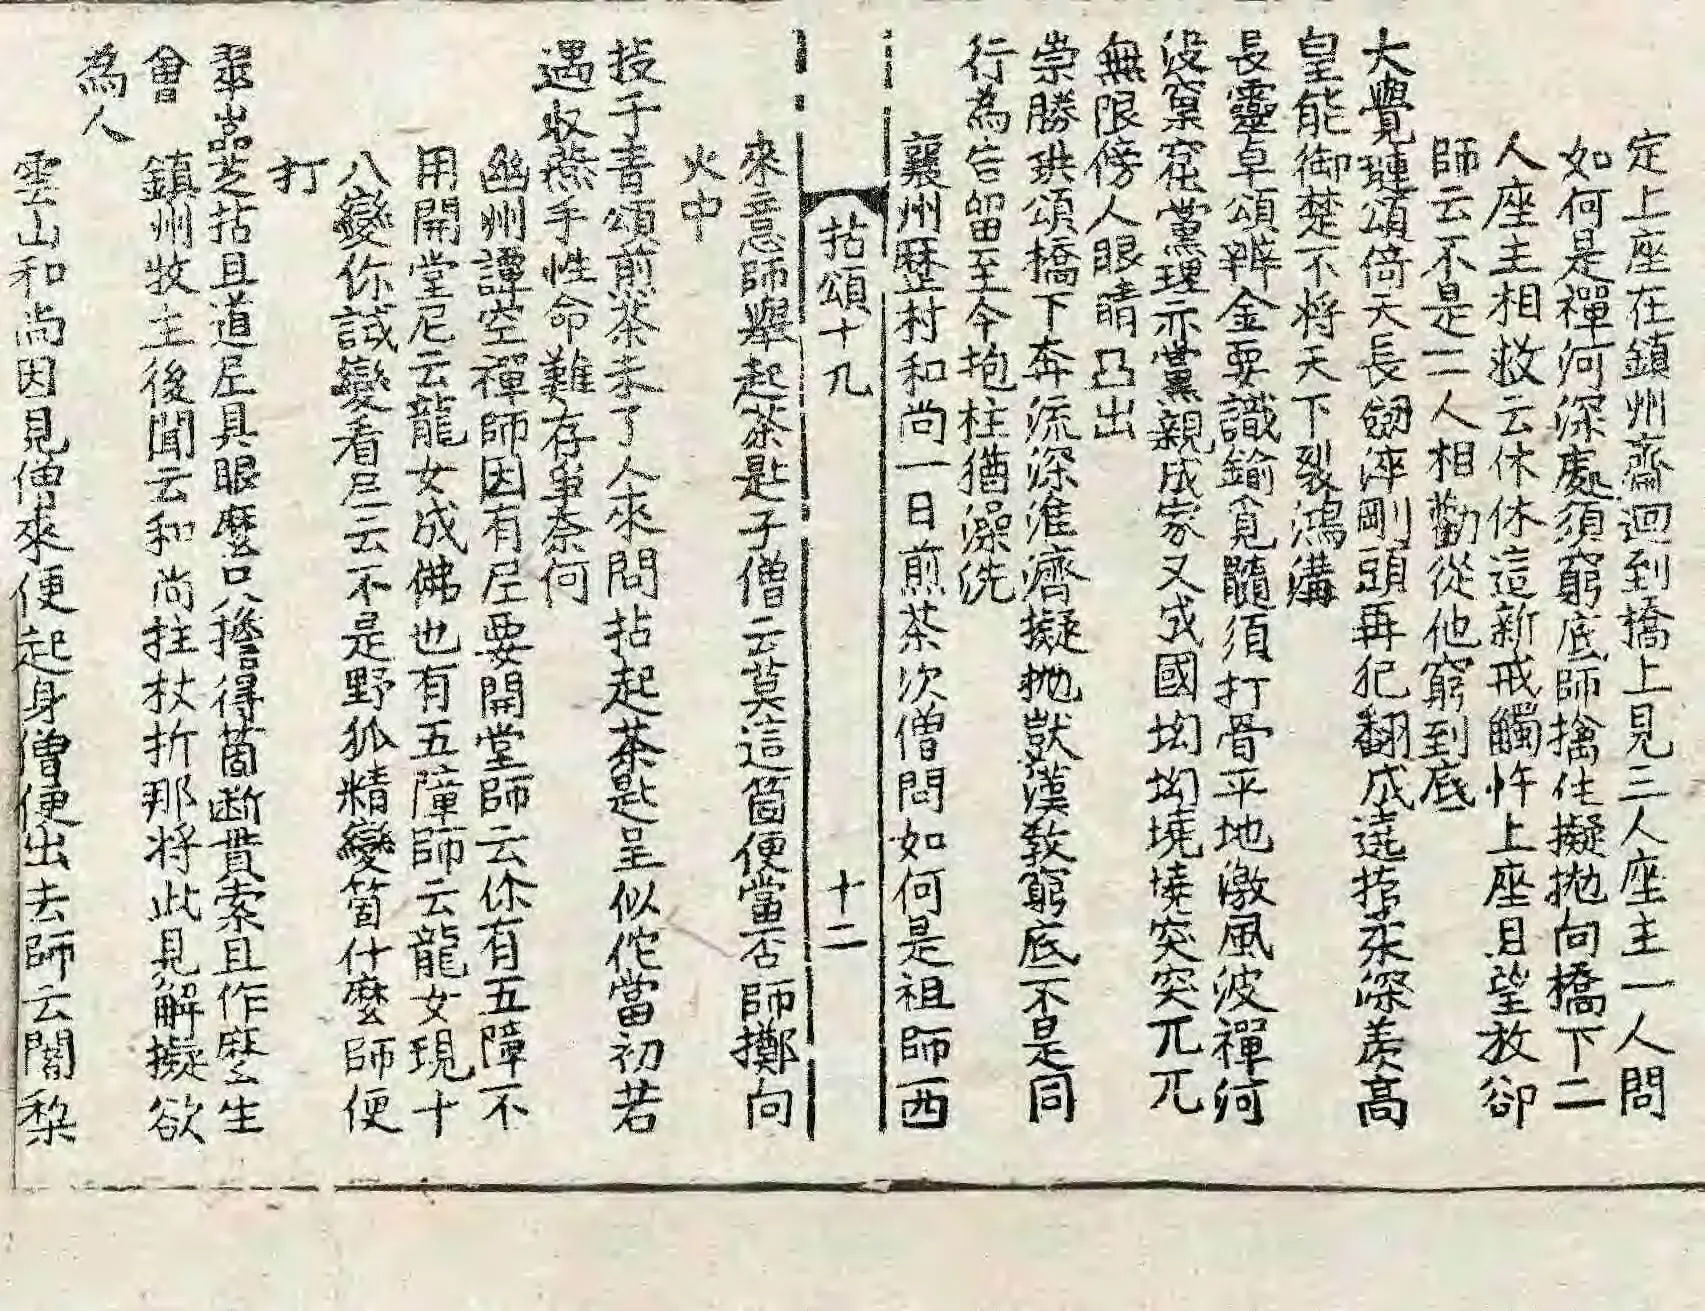 定上座在鎮州齋迴到橋上見三人座主一人問
如何是禪河深處須窮底師擒住擬拋向橋下二
人座主相救云休休這新戒觸忤上座且望放卻
師云不是二人相勸從他窮到底
大覺璉頌倚天長劒淬剛頭再犯翻成遶指柔深羨高
皇能御楚不將天下裂鴻溝
長靈卓頌辨金要識鍮覓髓須打骨平地激風波禪河
沒窠窟黨理示黨親成家又成國坳坳墝墝突突兀兀
無限傍人眼睛凸出
崇勝珙頌橋下奔流深淮濟擬拋獃漢教窮底不是同
行為告留至今抱柱猶澡洗
襄州歷村和尚一日煎茶次僧問如何是祖師西
拈頌十九 十二
來意師舉起茶匙子僧云莫這箇便當否師擲向
火中
投子青頌煎茶未了人來問拈起茶匙呈似佗當初若
遇收燕手性命難存爭奈何
幽州譚空禪師因有尼要開堂師云你有五障不
用開堂尼云龍女成佛也有五障師云龍女現十
八變你試變看尼云不是野狐精變箇什麼師便
打
翠嵓芝拈且道尼具眼麼只擔得箇斷貫索且作麼生
會 鎮州牧主後聞云和尚拄杖折那將此見解擬欲
為人
雲山和尚因見僧來便起身僧便出去師云闍棃